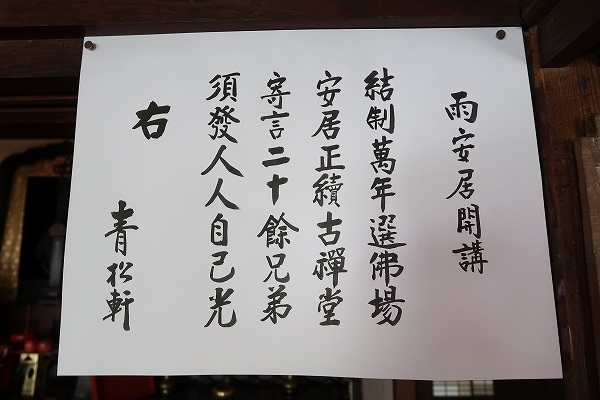 雨安居開講
結制萬年選佛場
安居正續古禪堂
寄言二十餘兄弟
須發人人自己光
右
青松軒